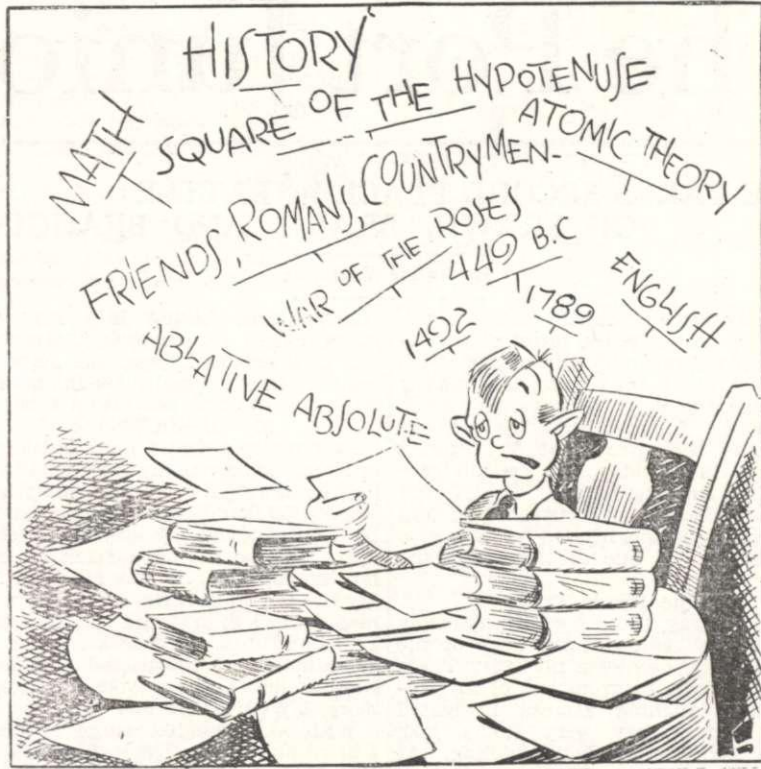 HISTORY
MATH
SQUARE OF THE HYPOTENUSE
ATOMIC THEORY
FRIENDS, ROMANS, COUNTRYMEN-
WAR OF THE ROSES
449 B.C
ENGLISH
1492
1789
ABLATIVE ABSOLUTE